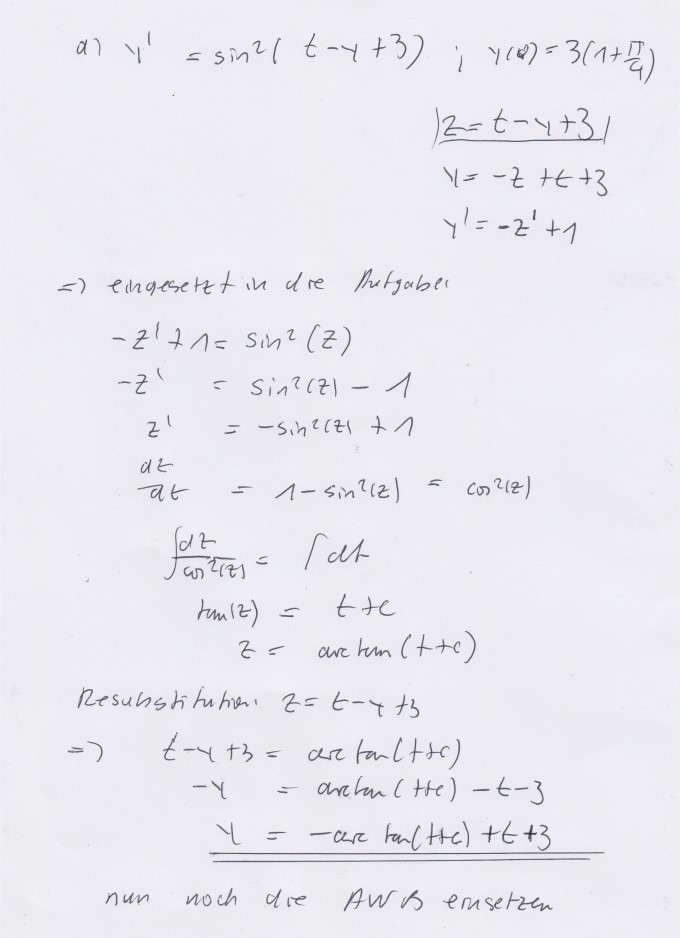 a) y' = sin²( t-y+3) ; y(0)=3(1+π/4)
|z= t-y+3|
y= -z +t +3
y'= -z' +1
=) eingesetzt in die Aufgabe:
-z' + 1 = sin² (z)
-z' = sin²(z) - 1
z' = -sin²(z) + 1
dz/dt = 1-sin²(z) = cos²(z)
∫dz/cos²(z) = ∫dt
tan(z) = t+c
z = arc tan (t+c)
Resubstitution: z= t-y+3
=) t-y+3 = arc tan(t+c)
-y = arctan(t+c) -t-3
y = -arc tan(t+c) +t+3
nun noch die AWB einsetzen